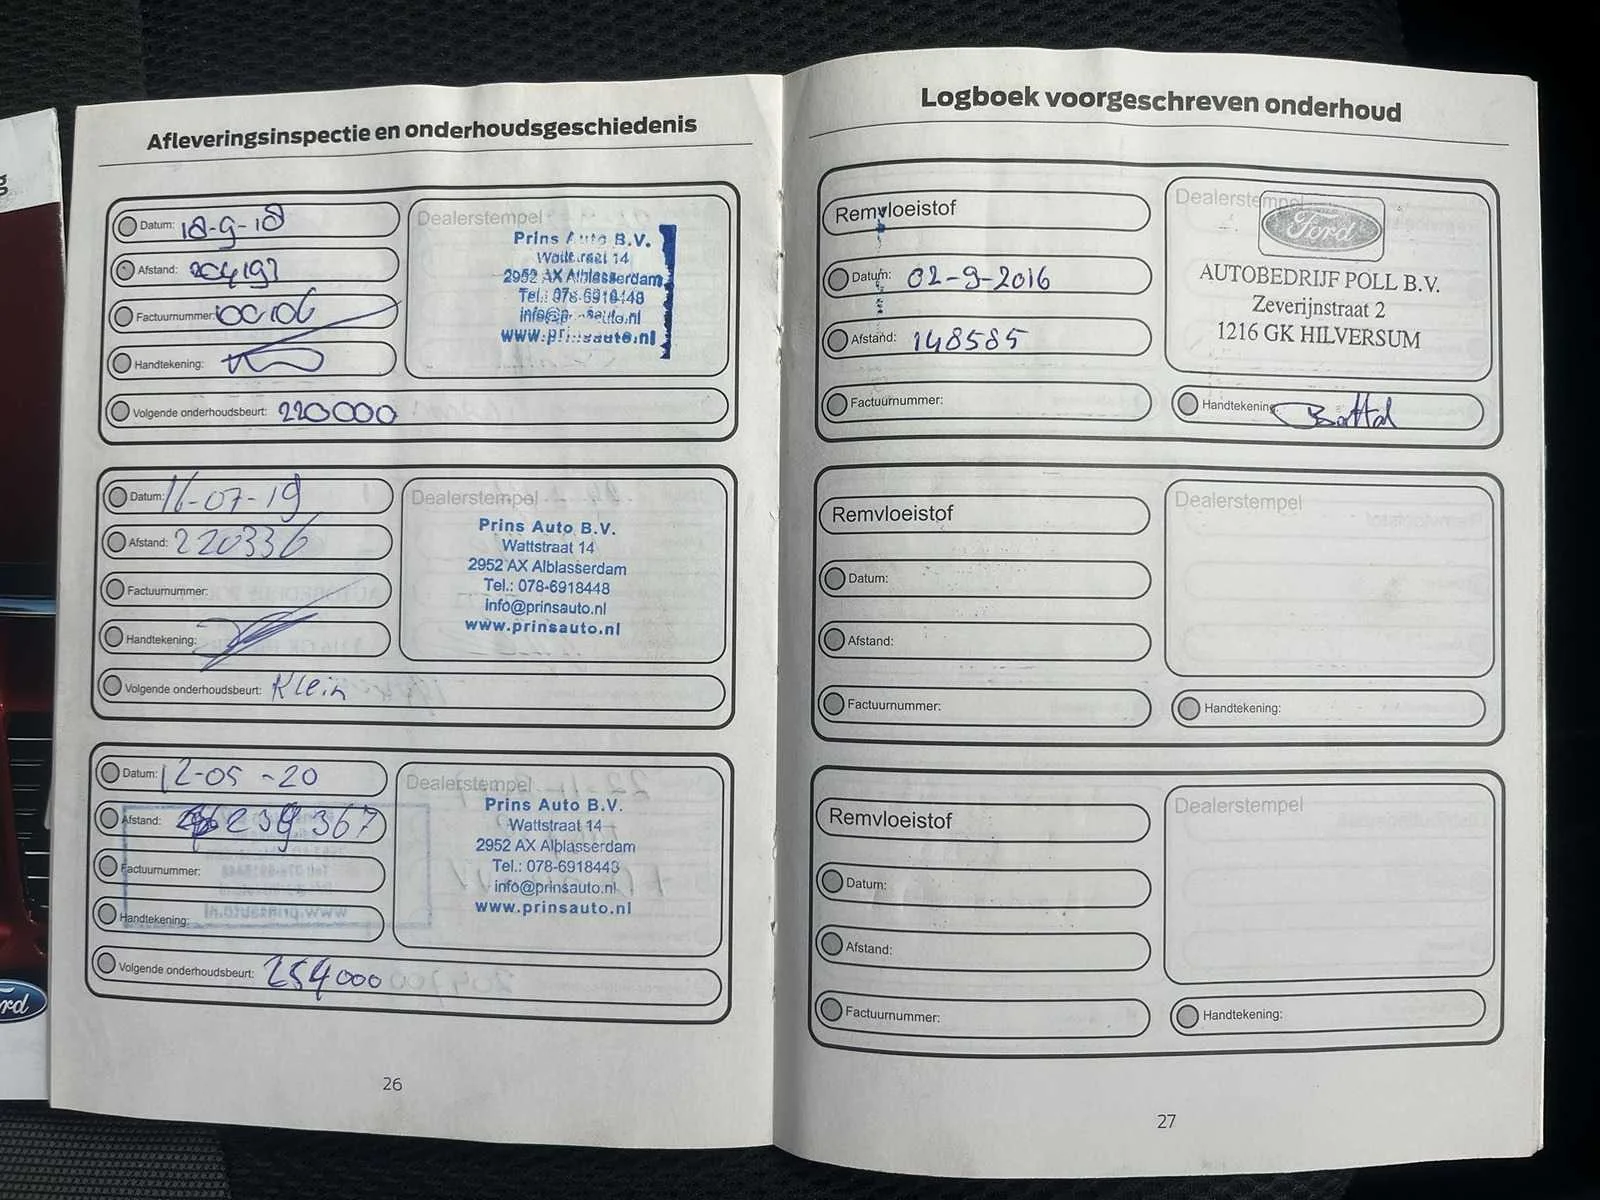 Afleveringsinspectie en onderhoudsgeschiedenis
Datum: 18-9-18
Afstand: 204193
Factuurnummer: 00106
Handtekening:
Volgende onderhoudsbeurt: 220000
Dealerstempel
Prins Auto B.V.
Wattstraat 14
2952 AX Alblasserdam
Tel.: 078-6918448
info@prinsauto.nl
www.prinsauto.nl
Datum: 16-07-19
Afstand: 220336
Factuurnummer:
Handtekening:
Volgende onderhoudsbeurt: Klein
Dealerstempel
Prins Auto B.V.
Wattstraat 14
2952 AX Alblasserdam
Tel.: 078-6918448
info@prinsauto.nl
www.prinsauto.nl
Datum: 12-05-20
Afstand: 239367
Factuurnummer:
Handtekening:
Volgende onderhoudsbeurt: 254000
Dealerstempel
Prins Auto B.V.
Wattstraat 14
2952 AX Alblasserdam
Tel.: 078-6918448
info@prinsauto.nl
www.prinsauto.nl
26
Logboek voorgeschreven onderhoud
Remvloeistof
Datum: 02-9-2016
Afstand: 148585
Factuurnummer:
Dealerstempel
Ford
AUTOBEDRIJF POLL B.V.
Zeverijnstraat 2
1216 GK HILVERSUM
Handtekening:
Remvloeistof
Datum:
Afstand:
Factuurnummer:
Dealerstempel
Handtekening:
Remvloeistof
Datum:
Afstand:
Factuurnummer:
Dealerstempel
Handtekening:
27